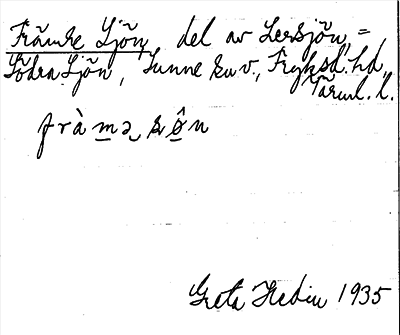 Främre Sjön, del av Lersjön =
Södra Sjön, Sunne sn v., Fryksd. hd,
Värml. l.
fràmə sø̂n
Greta Hedin 1935